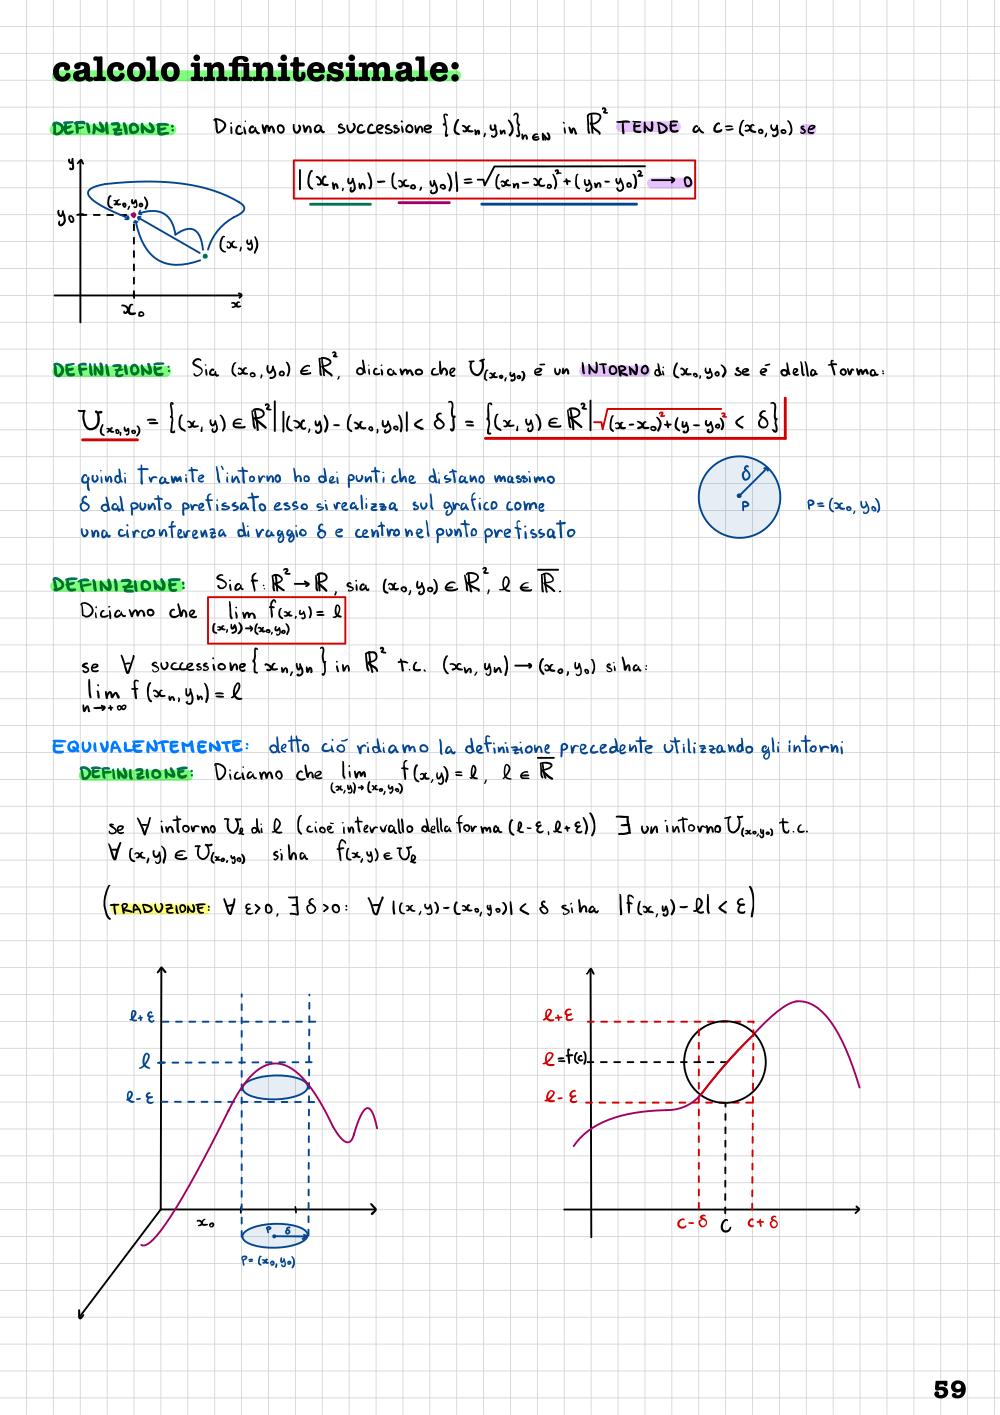 calcolo infinitesimale:
DEFINIZIONE: Diciamo una successione {(xₙ,yₙ)}ₙ∈ℕ in ℝ² TENDE a c=(x₀,y₀) se
|(xₙ,yₙ)-(x₀,y₀)|=√(xₙ-x₀)²+(yₙ-y₀)² → 0
y
(x₀,y₀)
y₀
(x,y)
x₀
x
DEFINIZIONE: Sia (x₀,y₀) ∈ ℝ², diciamo che U(x₀,y₀) é un INTORNO di (x₀,y₀) se é della forma:
U(x₀,y₀) = {(x,y) ∈ ℝ²||(x,y)-(x₀,y₀)|< δ} = {(x,y) ∈ ℝ²|√(x-x₀)²+(y-y₀)² < δ}
quindi Tramite l'intorno ho dei punti che distano massimo
δ dal punto prefissato esso si realizza sul grafico come
una circonferenza di raggio δ e centro nel punto prefissato
δ
P
P=(x₀,y₀)
DEFINIZIONE: Sia f:ℝ²→ℝ, sia (x₀,y₀) ∈ ℝ², ℓ ∈ ℝ̅.
Diciamo che lim f(x,y)= ℓ
(x,y)→(x₀,y₀)
se ∀ successione{xₙ,yₙ} in ℝ² T.C. (xₙ,yₙ)→(x₀,y₀) si ha:
lim f(xₙ,yₙ)= ℓ
n→+∞
EQUIVALENTEMENTE: detto ció ridiamo la definizione precedente utilizzando gli intorni
DEFINIZIONE: Diciamo che lim f(x,y)= ℓ, ℓ ∈ ℝ̅
(x,y)→(x₀,y₀)
se ∀ intorno Uℓ di ℓ (cioé intervallo della forma (ℓ-ε,ℓ+ε)) ∃ un intorno U(x₀,y₀) t.c.
∀ (x,y) ∈ U(x₀,y₀) si ha f(x,y)∈Uℓ
(TRADUZIONE: ∀ ε>0, ∃ δ>0: ∀ |(x,y)-(x₀,y₀)|< δ si ha |f(x,y)-ℓ|< ε)
ℓ+ε
ℓ
ℓ-ε
x₀
P δ
P=(x₀,y₀)
ℓ+ε
ℓ=f(c)
ℓ-ε
c-δ C c+δ
59